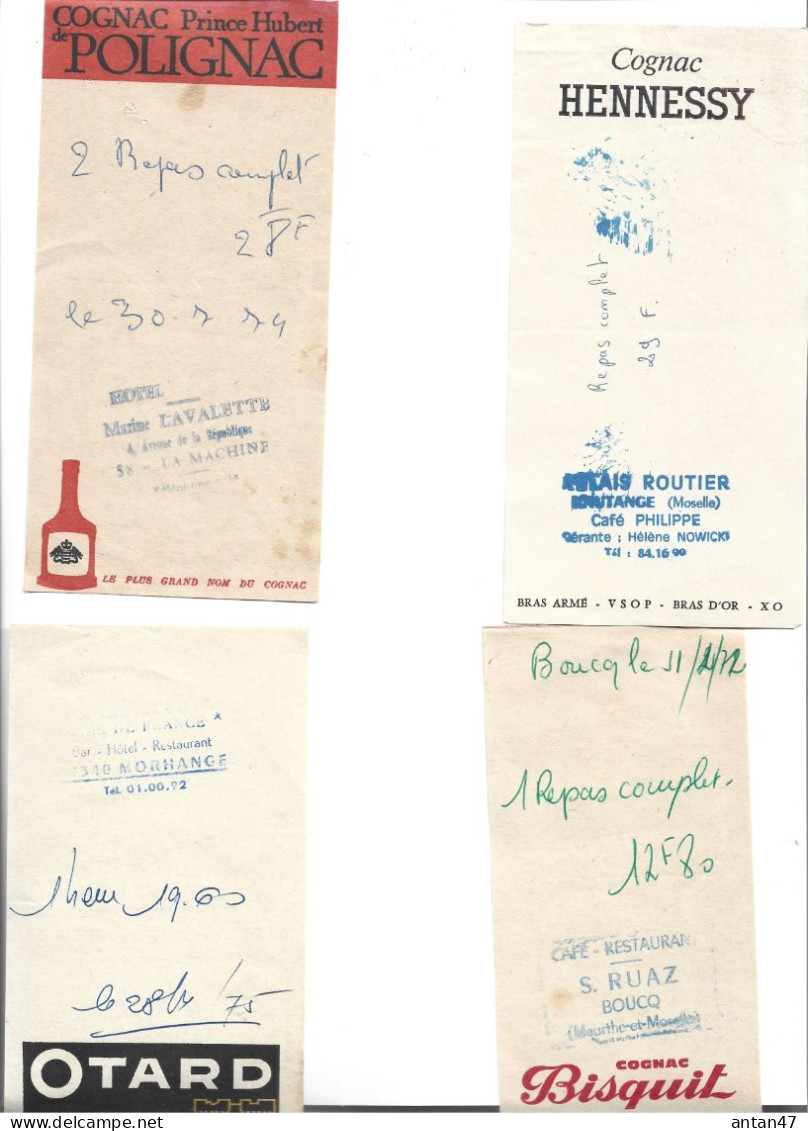 COGNAC Prince Hubert
de POLIGNAC
2 Repas complet
28F
le 30-7 74
HOTEL
Marine LAVALETTE
4, Avenue de la République
58 - LA MACHINE
LE PLUS GRAND NOM DU COGNAC
Cognac
HENNESSY
Repas complet
29 F.
RELAIS ROUTIER
KNUTANGE (Moselle)
Café PHILIPPE
Gérante : Hélène NOWICKI
Tél : 84.16 90
BRAS ARMÉ - VSOP - BRAS D'OR - XO
DE FRANCE *
Bar - Hôtel - Restaurant
340 MORHANGE
Tél. 01.00.92
1 menu 19.00
le 28/ /75
OTARD
Boucq le 11/2/72
1 Repas complet.
12F80
CAFÉ - RESTAURAN
S. RUAZ
BOUCQ
(Meurthe-et-Moselle)
COGNAC
Bisquit
delcampe.net
antan47